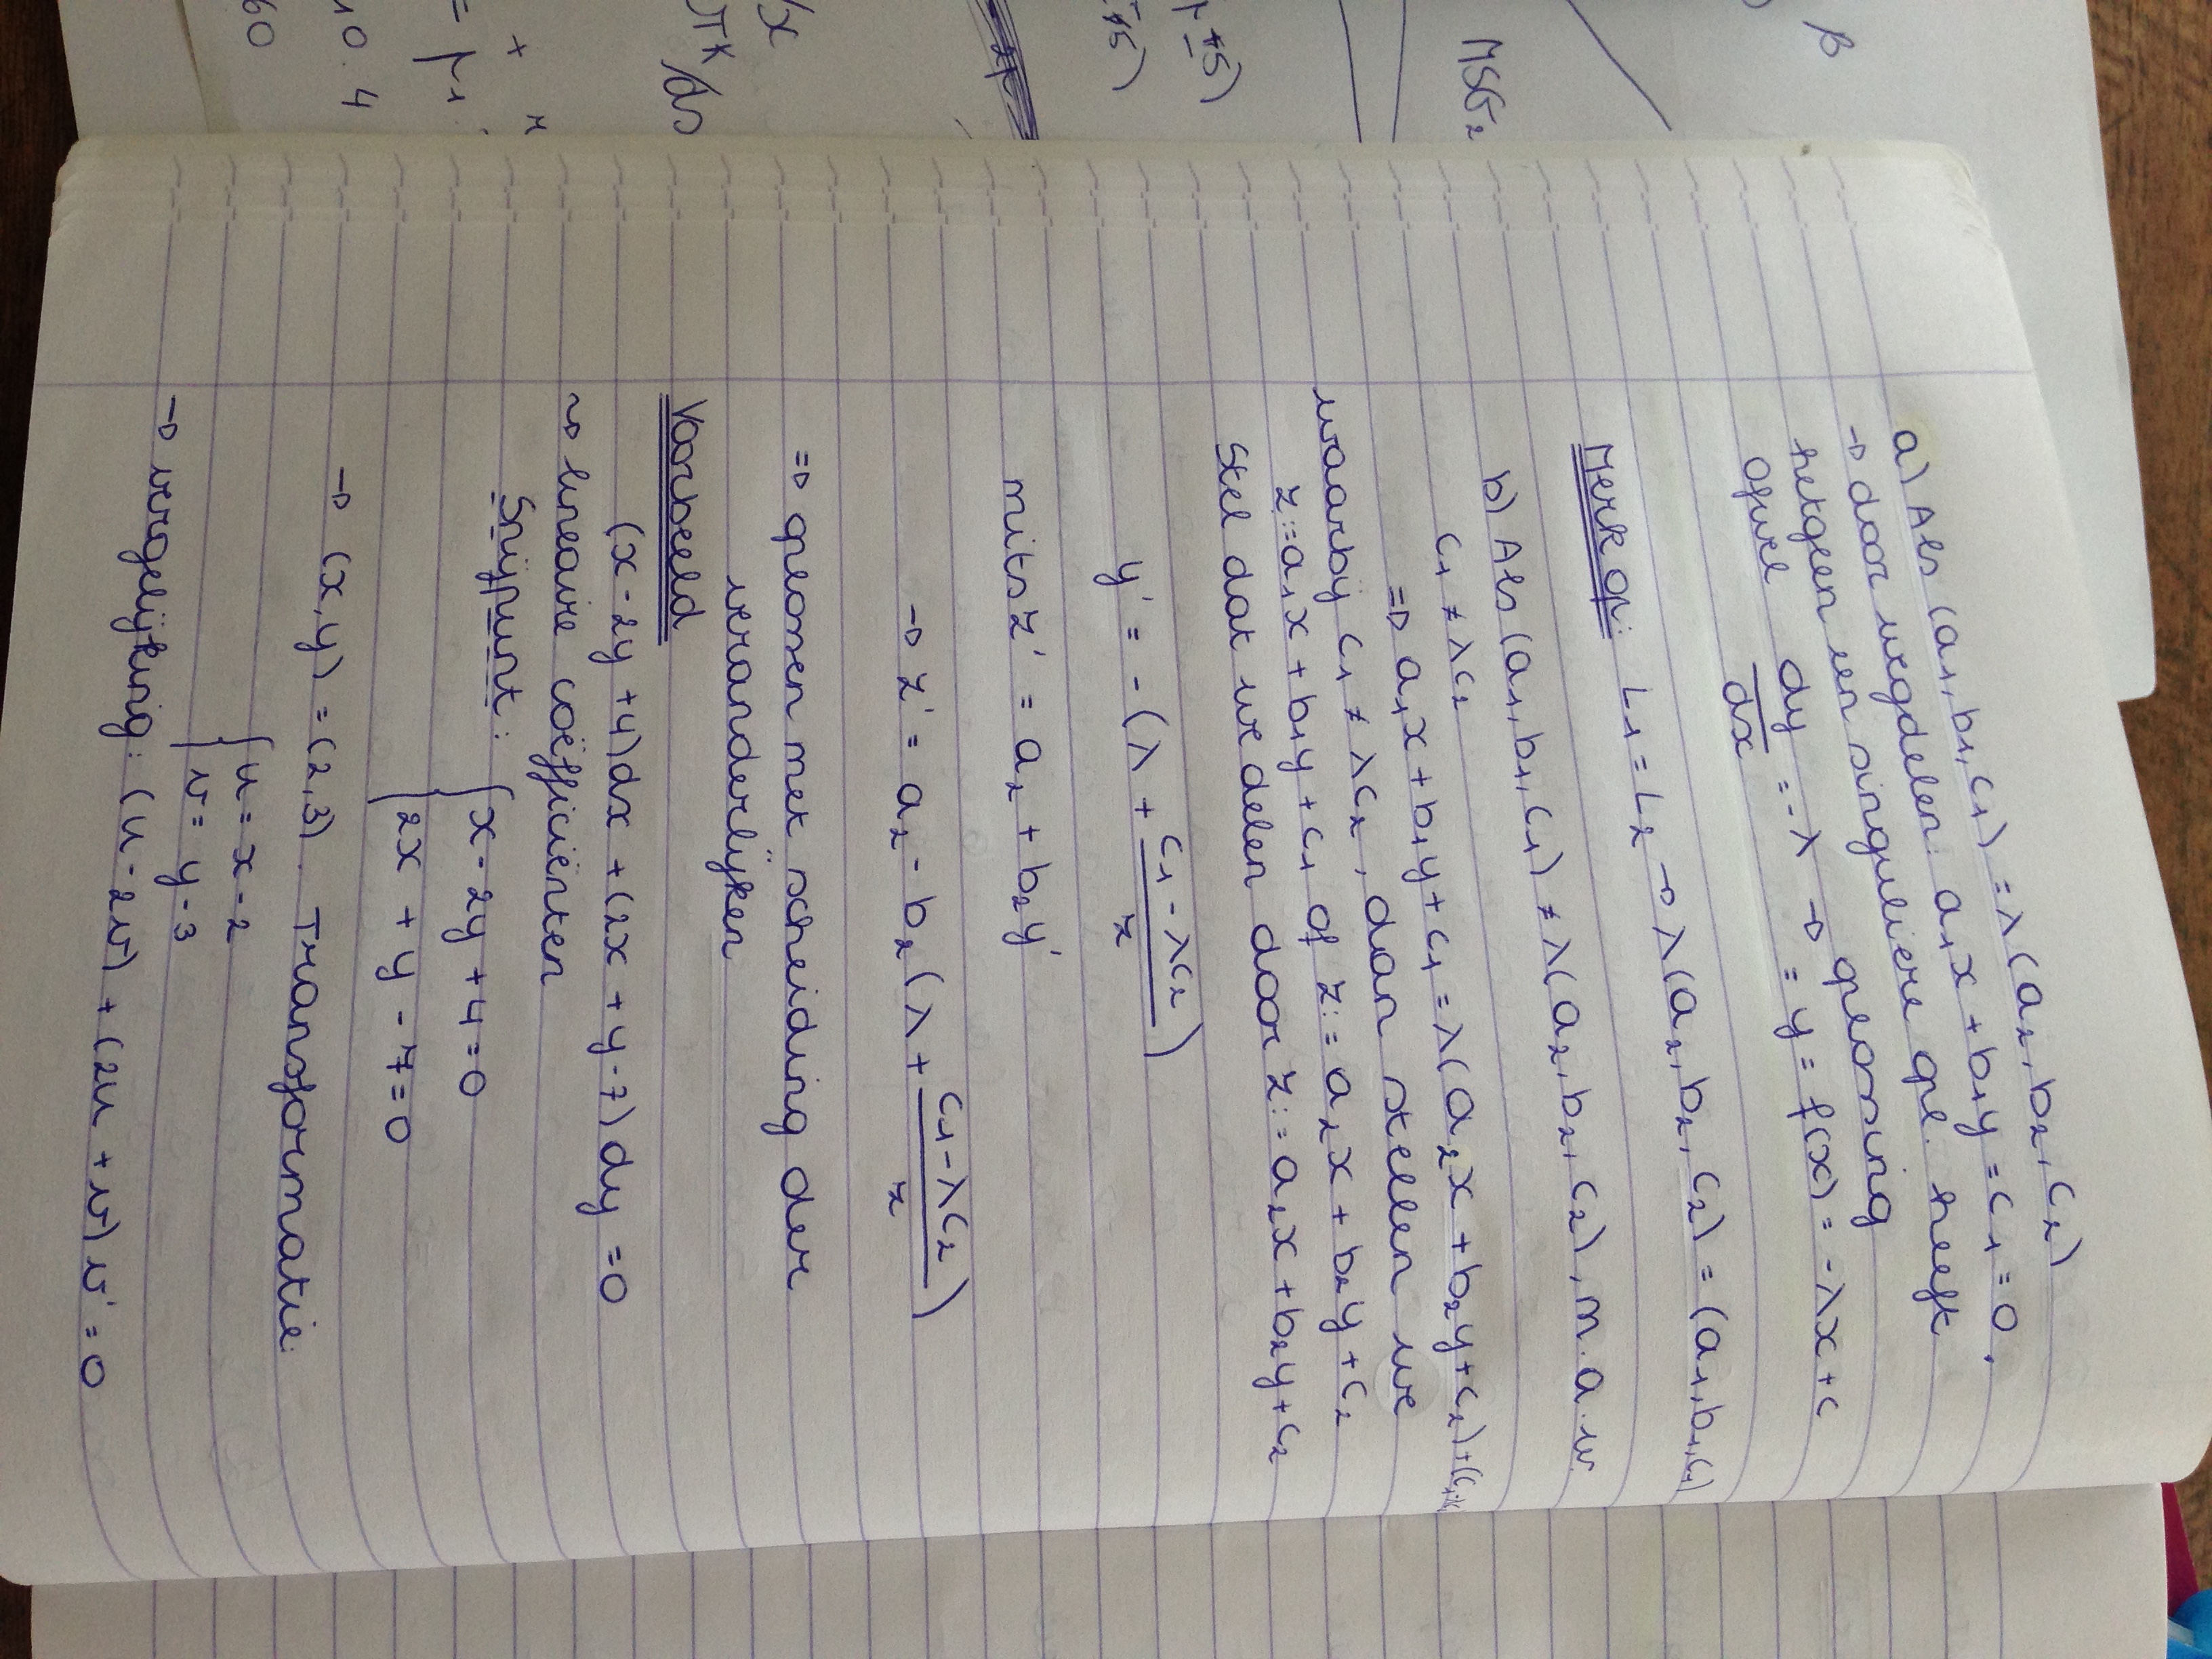 a) Als (a₁, b₁, c₁) = λ(a₂, b₂, c₂)
→ door wegdelen: a₁x + b₁y = c₁ = 0,
hetgeen een singuliere opl. heeft
Ofwel dy/dx = -λ → oplossing
= y = f(x) = -λx + c
Merk op: L₁ = L₂ → λ(a₂, b₂, c₂) = (a₁, b₁, c₁)
b) Als (a₁, b₁, c₁) ≠ λ(a₂, b₂, c₂), m.a.w.
c₁ ≠ λc₂
⇒ a₁x + b₁y + c₁ = λ(a₂x + b₂y + c₂) + (c₁-λc₂
waarbij c₁ ≠ λc₂, dan stellen we
z := a₁x + b₁y + c₁ of z := a₂x + b₂y + c₂
Stel dat we delen door z := a₂x + b₂y + c₂
y' = -(λ + (c₁ - λc₂)/z)
mits z' = a₂ + b₂y'
→ z' = a₂ - b₂(λ + (c₁ - λc₂)/z)
⇒ oplossen met scheiding der
veranderlijken
Voorbeeld
(x - 2y + 4)dx + (2x + y - 7)dy = 0
⇝ lineaire coëfficiënten
Snijpunt: { x - 2y + 4 = 0
2x + y - 7 = 0
→ (x, y) = (2, 3). Transformatie:
{ u = x - 2
v = y - 3
→ vergelijking: (u - 2v) + (2u + v) v' = 0
β
MSG₂
±5)
5)
/x
/ds
+
= μ₁
10.4
60